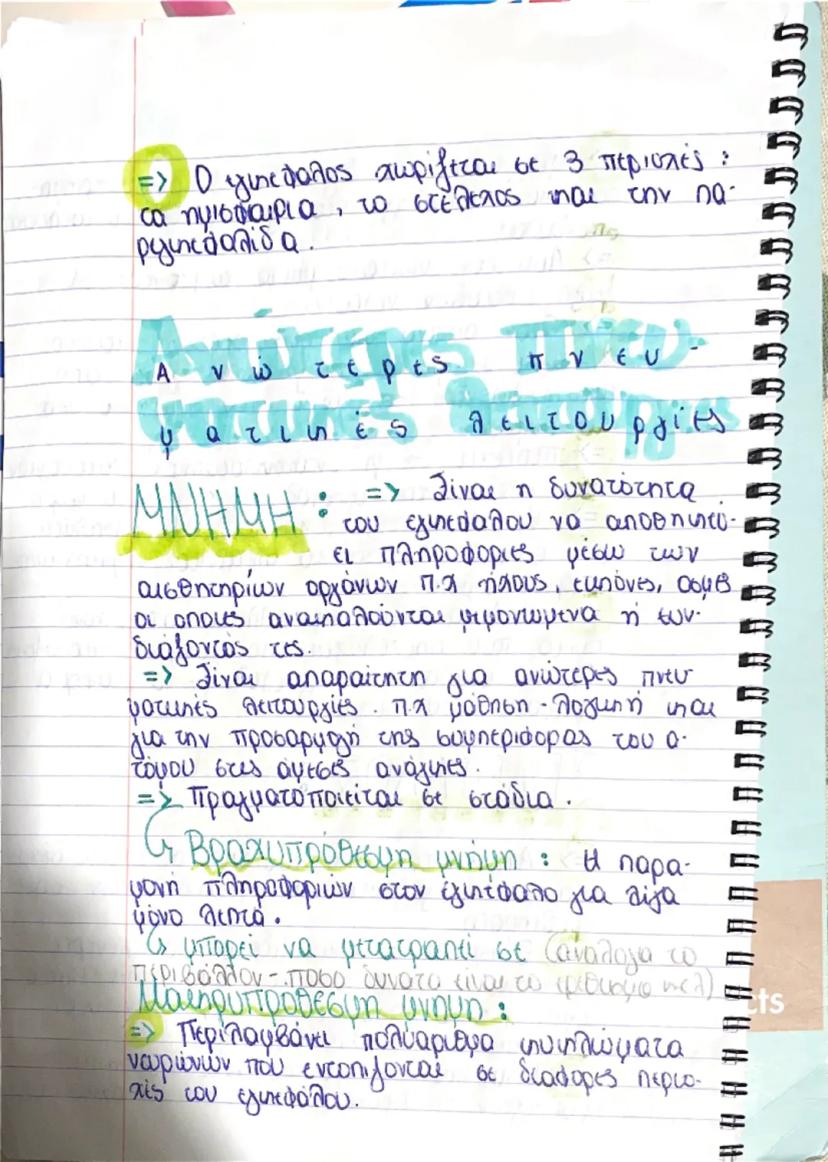 => Ο εγκέφαλος χωρίζεται σε 3 περιοχές :
τα ημισφαίρια, το στέλεχος και την πα-
ρεγκεφαλίδα.
Ανώτερες πνευ-
ματικές λειτουργίες
ΜΝΗΜΗ : => Είναι η δυνατότητα
του εγκεφάλου να αποθηκεύ-
ει πληροφορίες μέσω των
αισθητηρίων οργάνων π.χ ήχους, εικόνες, οσμές
οι οποιες ανακαλούνται μεμονωμένα ή συν-
διάζοντάς τες.
=> Είναι απαραίτητη για ανώτερες πνευ
ματικές λειτουργίες. π.χ μάθηση - λογική και
για την προσαρμογή της συμπεριφοράς του α-
τόμου στις άμεσες ανάγκες.
=> Πραγματοποιείται σε στάδια.
↳ Βραχυπρόθεσμη μνήμη : Η παρα-
μονή πληροφοριών στον εγκέφαλο για λίγα
μόνο λεπτά.
↳ μπορεί να μετατραπεί σε (ανάλογα το
περιβάλλον - ποσο δυνατο είναι το ερέθισμα κελ)
Μακρυπρόθεσμη μνήμη :
=> Περιλαμβάνει πολυάριθμα κυκλώματα
νευρώνων που εντοπίζονται σε διάφορες περιο-
χές του εγκεφάλου.
cts